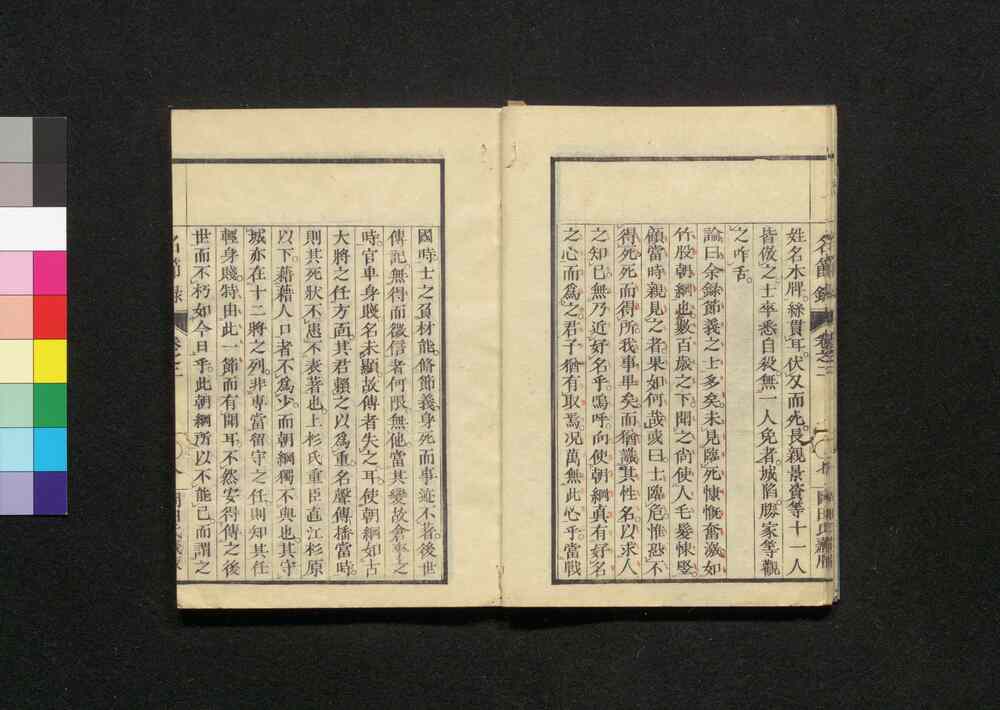 名節錄　卷之二　岡田氏藏版
姓名木牌。絲貫耳。伏刄而死。長親景資等十一人
皆倣之。士卒悉自殺無一人免者。城陷。勝家等觀
之咋舌。
論曰。余錄節義之士多矣。未見臨死慷慨奮激如
竹股朝綱也。數百歲之下聞之。尙使人毛髮悚竪。
顧當時親見之者果如何哉。或曰。士臨危惟恐不
得死。死而得所。我事畢矣。而猶識其性名。以求人
之知已。無乃近好名乎。嗚呼。向使朝綱眞有好名
之心而爲之。君子猶有取焉。况萬無此心乎。當戰
國時。士之負材能。脩節義。身死而事迹不著。後世
傳記無得而徵信者何限。無他。當其變故倉卒之
時。官卑身賤。名未顯。故傳者失之耳。使朝綱如古
大將之任方面。其君賴之以爲重。名聲傳播當時。
則其死狀不患不表著也。上杉氏重臣。直江杉原
以下。藉藉人口者不爲少。而朝綱獨不與也。其守
城。亦在十二將之列。非專當留守之任。則知其任
輕身賤。特由此一節而有聞耳。不然。安得傳之後
世而不朽如今日乎。此朝綱所以不能已而謂之
名節錄　卷之二